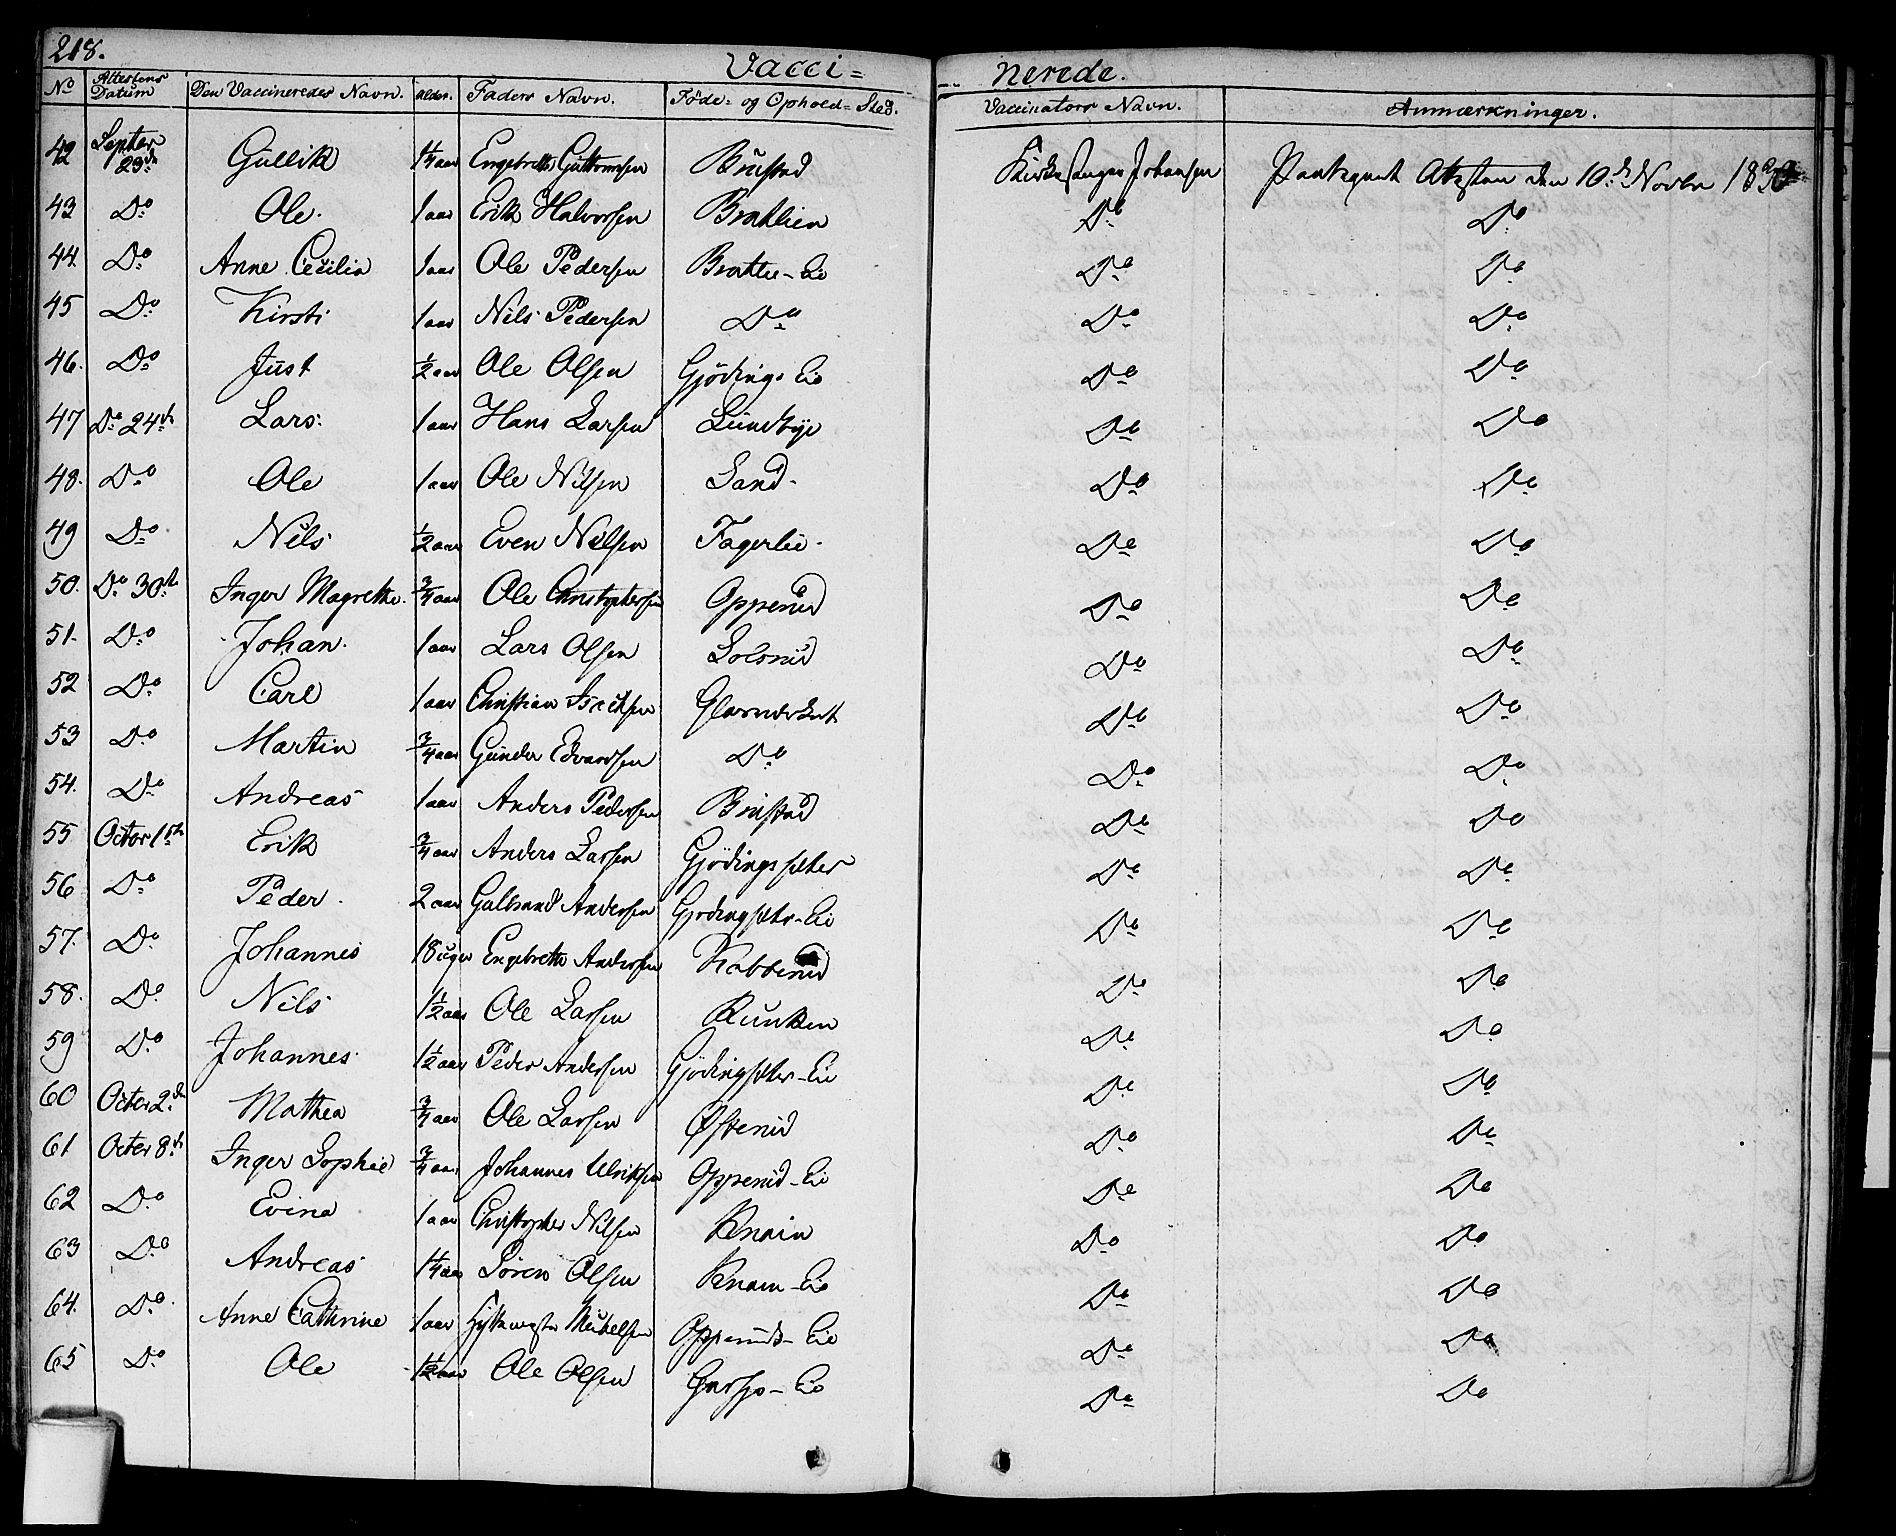 218.
Vacci= nerede.
No Attestens Datum Den Vaccineredes Navn. Alder. Faders Navn. Føde= og Ophold=Sted. Vaccinators Navn. Anmærkninger.
42 Septbr 23de Gullik 1¼ aar Engebrett Guttormsen Kirkesanger Johansen den 10de Novbr
43 Do Ole. 1 aar Erik Halvorsen Bratlien Do Do
44. Do Anne Cecilia 1 aar Ole Pedersen Bratlie-Eie Do Do
45 Do Kirsti 1 aar Nils Pedersen Do Do Do
46. Do Just ½ aar Ole Olsen Gjødings Eie Do Do
47 Do 24de Lars. 1 aar Hans Larsen Lundbye Do Do
48. Do Ole 1 aar Ole Nilsen Sand. Do Do
49 Do Nils ½ aar Even Nilsen Fagerlie. Do Do
50. Do 30te Inger Magrethe. ¾ aar Ole Christophersen Opperud Do Do
51. Do Johan. 1 aar Lars Olsen Do Do
52 Do Carl 1 aar Christian Isacksen Do Do
53 Do Martin ¾ aar Gunder Edvardsen Do Do Do
54. Do Andreas 1 aar Anders Pedersen Do Do
55 Octor 1ste Erik ¾ aar Anders Larsen Gjødingsæter Do Do
56 Do Peder. 2 aar Gulbrand Andersen Gjødingsæter-Eie Do Do
57. Do Johannes 18 uger Engebrett Andersen Do Do
58. Do Nils 1½ aar Ole Larsen Runken Do Do
59 Do Johannes. 1½ aar Peder Andersen Gjødingsæter-Eie Do Do
60 Octer 2den Mathea ¾ aar Ole Larsen Østerud Do Do
61 Octer 8de Inger Sophie ¾ aar Johannes Ulriksen Opperud-Eie Do Do
62 Do Evina 1 aar Christopher Nilsen Knain Do Do
63 Do Andreas 1¼ aar Søren Olsen Knain-Eie Do Do
64. Do. Anne Cathrine 1 aar Opperuds-Eie Do Do
65 Do Ole 1½ aar Ole Olsen Garsjø-Eie Do Do